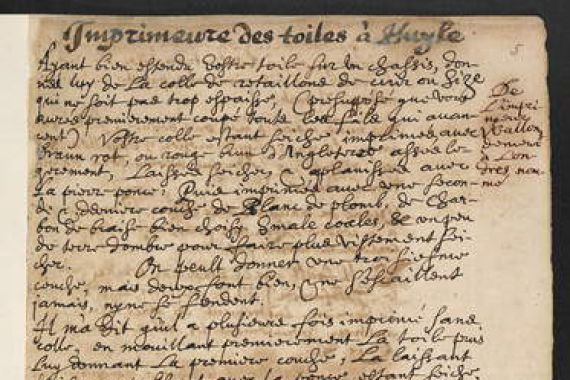 Imprimeure des toiles à Huyle
5
Ayant bien estendu vostre toile sur un chassis, don-
nés luy de La colle de retaillons de cuir ou size
qui ne soit pas trop espaisse, (presuposé que vous
aures premierement coupé touts les fils qui auan-
cent) Vostre colle estant seiche imprimes auec
braun rot, ou rouge brun d'Angleterre assés le-
gerement, Laisses seicher, & applanisses auec
la pierre ponce. Puis imprimes auec une secon-
de & derniere couche de Blanc de plomb, de Char-
bon de braise bien choisy Smale coales, & un peu
de terre dombre pour faire plus vistement sei-
cher. On peult donner une troisiesme
couche, mais deux font bien, & ne s'escaillent
jamais, ny ne se fendent.
Il m'a dit qu'il a plusieurs fois imprimé sans
colle, en mouillant premierement La toile puis
Luy donnant La premiere couche, La laissant
De
L'impri
meur
Wallon
demeurant
à Lon
dres nom-
mé